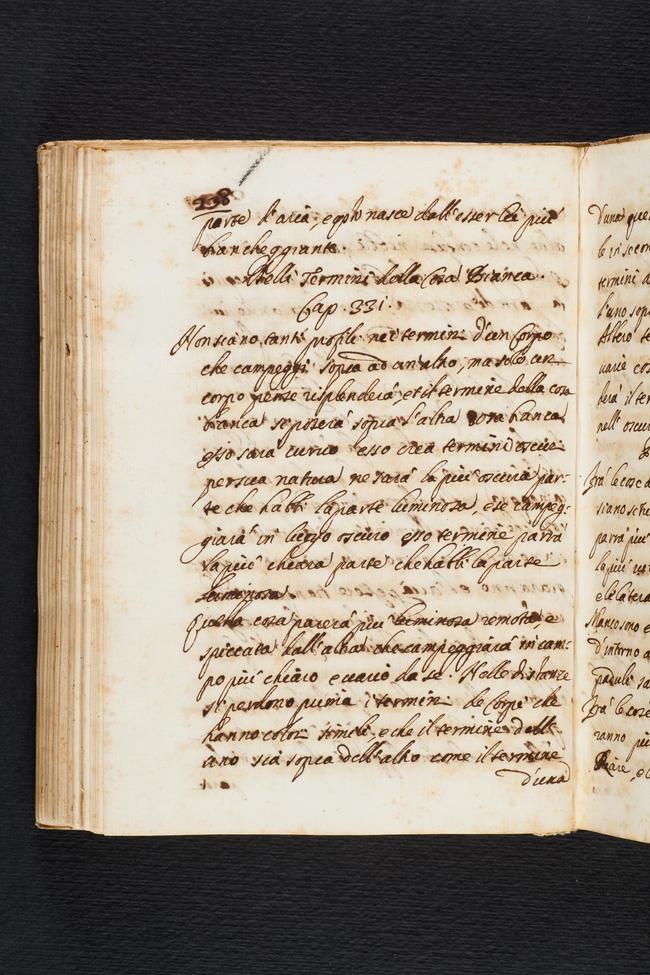 238
parte d'aria, e qsto nasce dall'esser lei più
biancheggiante.
Delli Termini della Cosa Bianca.
Cap. 331.
Non siano tanti profili nei termini d'un Corpo
che campeggi sopra ad un'altro, ma solo un
corpo per se risplenderà, et il termine della cosa
bianca si poserà sopra l'altra cosa bianca
esso sarà curvo esso crea termini oscuri
per sua natura ne sarà la più oscura par-
te che habbi la parte luminosa, e se campeg-
giarà in luogo oscuro esso termine parrà
la più chiara parte che habbi la parte
luminosa
Quella cosa parerà più luminosa remota e
spiccata dall'altra che campeggiarà in cam-
po più chiaro e vario da se. Nelle distanze
si perdono prima i termini de Corpi che
hanno colori simili, e che il termine dell
uno sia sopra dell'altro come il termine
d'una
d'una
le in
termini d
l'uno sopr
Altro te
varie cos
derà il ter
nell'oscur
frà le cose d
siano
parrà più
la più
e le latera
Mancono e
d'intorno a
frà le cose
ranno più